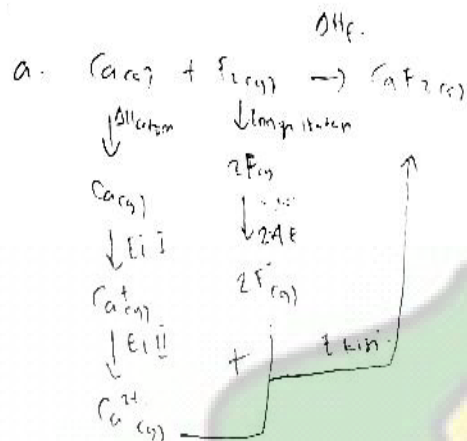 ΔHf
a. Ca(s) + F2(g) → CaF2(s)
↓ΔHatom ↓
Ca(g) 2F(g)
↓ Ei I ↓ 2AE
Ca+(g) 2F-(g)
↓ Ei II + E kisi
Ca2+(g)